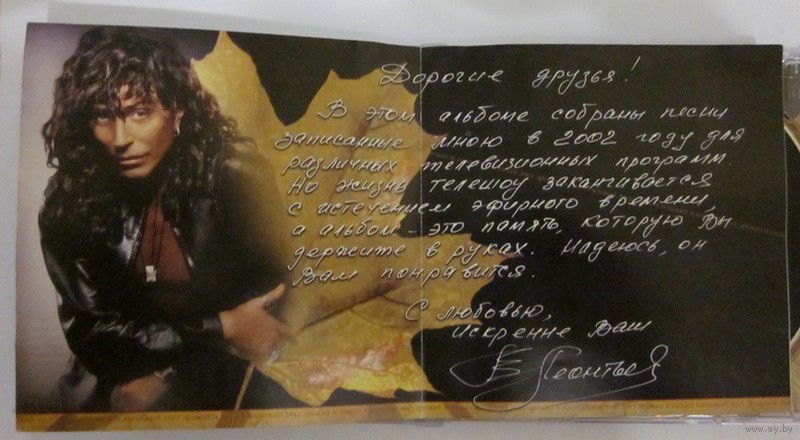 Дорогие друзья!
В этом альбоме собраны песни
записанные мною в 2002 году для
различных телевизионных программ
Но жизнь телешоу заканчивается
с истечением эфирного времени,
а альбом - это память, которую Вы
держите в руках. Надеюсь, он
Вам понравится.
С любовью,
искренне Ваш
В Леонтьев
www.ay.by